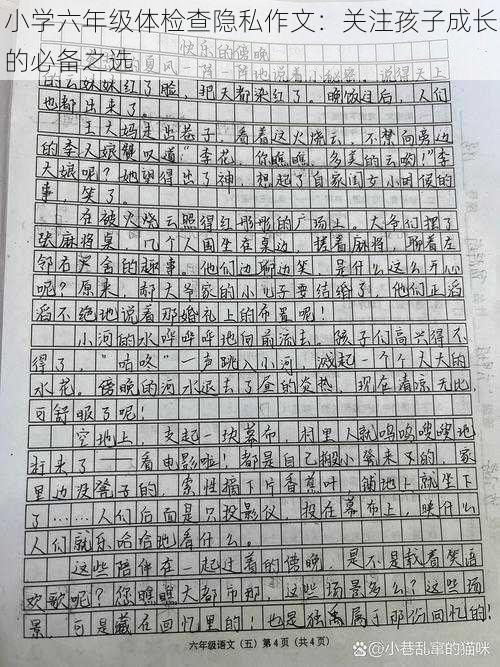 小学六年级体检查隐私作文：关注孩子成长
的必备之选
快乐的傍晚
的夏风一阵一阵地说着小秘密。说得天上
的云妹妹红了脸，把天都染红了。晚饭过后，人们
也都出来了。
王大妈走出巷子，看着这火烧云，不禁向旁边
的李大娘感叹道：“李花，你瞧瞧，多美的云哟！”李
大娘呢？她望得出了神，想起了自家闺女小时候的
事，笑了。
在被火烧云照得红彤彤的广场上。大爷们摆了
张麻将桌，几个人围坐在桌边，搓着麻将，聊着左
邻右舍的趣事，他们边聊边笑，是什么这么开心
呢？原来，郝大爷家的小儿子要结婚了，他们正滔
滔不绝地说着那婚礼上的布置呢！
小河的水哗哗哗地向前流去。孩子们高兴得不
得了，“咕咚”一声跳入小河，溅起一个个大大的
水花。傍晚的河水退去了昼的炎热，现在清凉无比，
可舒服了呢！
空地上，支起一块幕布，村里人就呜呜嗖嗖地
赶来了——看电影啦！都是自己搬小凳来的，家
里边没凳子的，索性摘下片香蕉叶，铺地上就坐下
了……人们后面是只投影仪，投在幕布上，映什么
人们就乐哈哈地看什么。
这些陪伴在一起过着的傍晚，是不是载着笑语
欢歌呢？您瞧瞧大都市那，这些场景多么？这些场
景，可是藏在回忆里的！也是独属于那份回忆的！
六年级语文（五）第4页（共4页）
头条 @小巷乱窜的猫咪